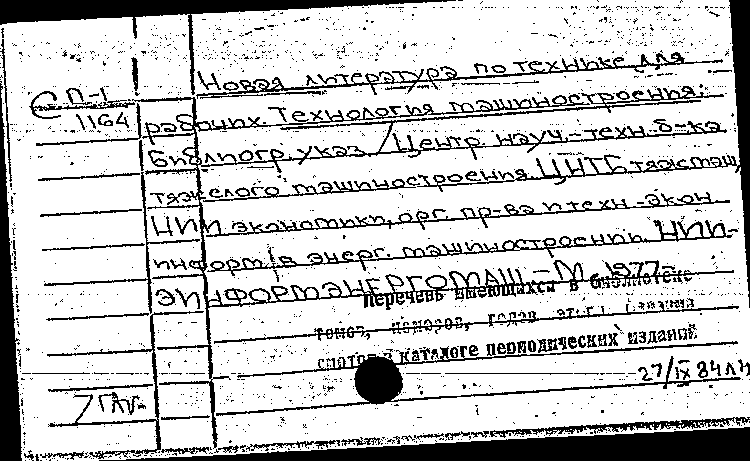 Новая литература по технике для
С П-1
1164
рабочих. Технология машиностроения:
Библиогр. указ. / Центр. науч.-техн. б-ка
тяжелого машиностроения. ЦНТБтяжмаш,
ЦИИ экономики, орг. пр-ва и техн.-экон.
информ. в энерг. машиностроении. НИИ-
ЭИНФОРМЭНЕРГОМАШ. - М. 1977-
Перечень имеющихся в библиотеке
томов, номеров, годов
смотри в каталоге периодических изданий
27/IX 84